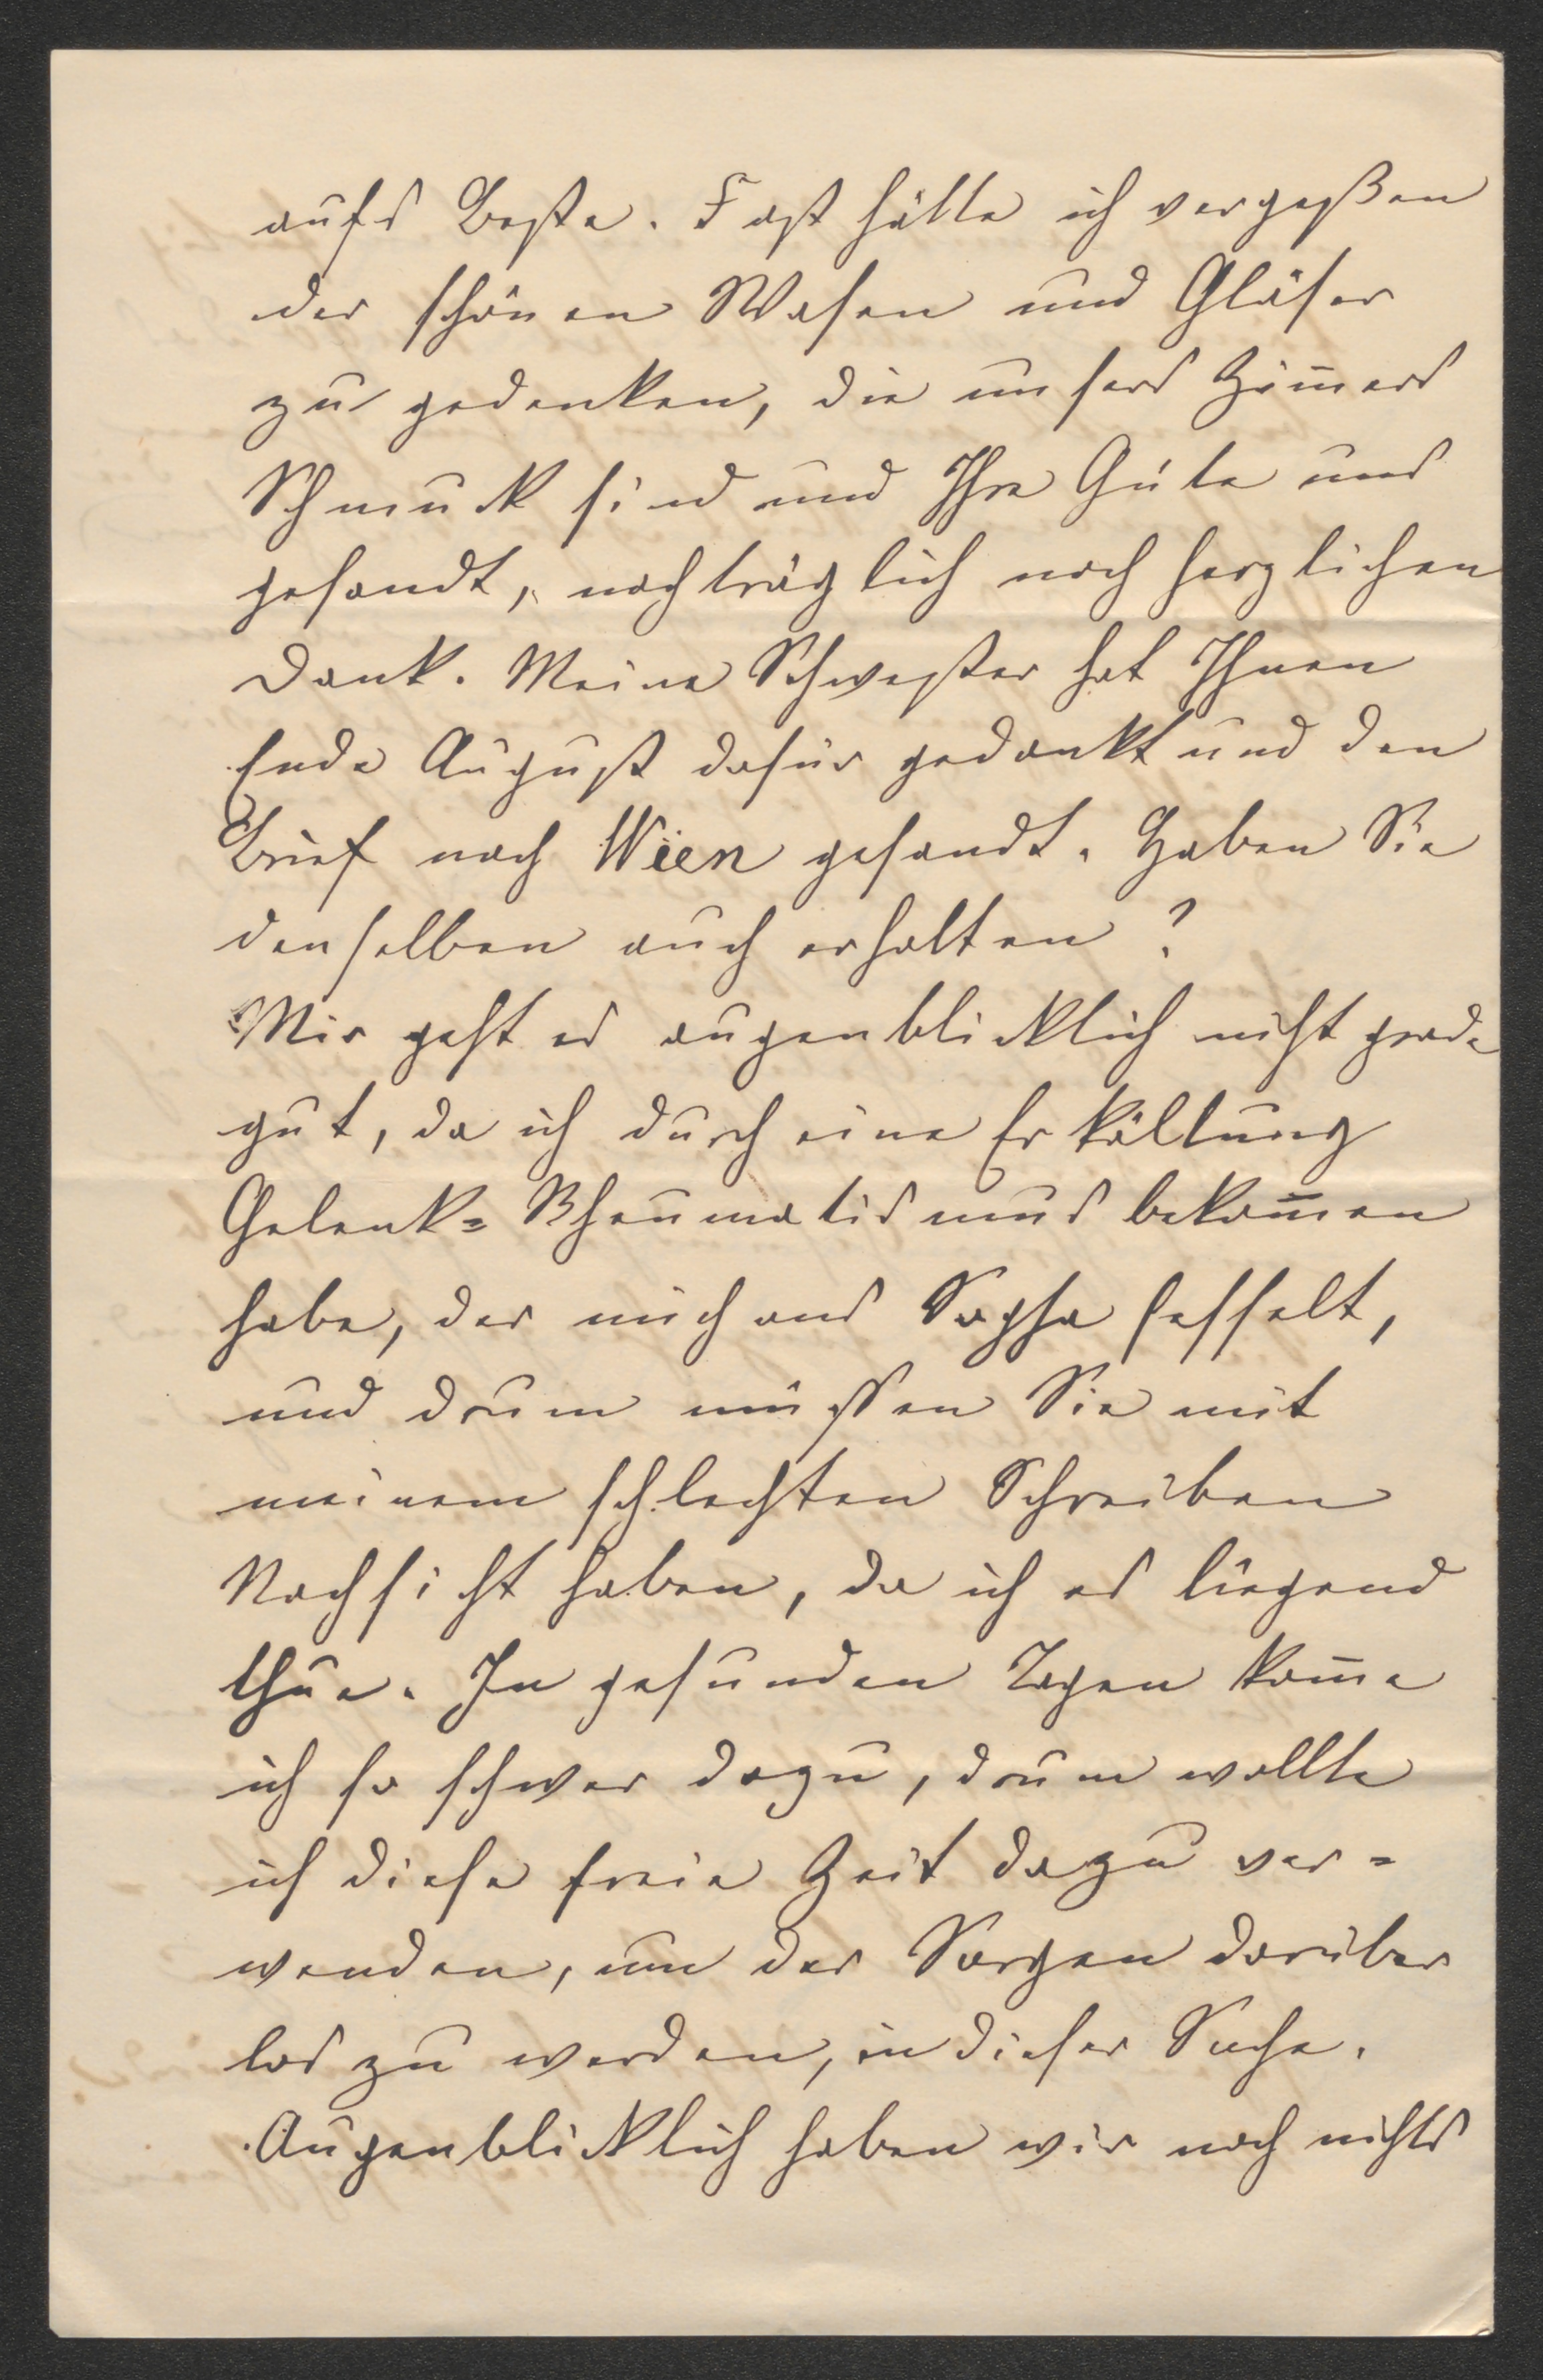 aufs Beste. Fast hätte ich vergeßen
der schönen Wasen und Gläser
zu gedenken, die unsers Zim̅ers
Schmuck sind und Ihre Güte uns
gesandt, nachträglich noch herzlichen
Dank. Meine Schwester hat Ihnen
Ende August dafür gedankt und den
Brief nach Wien gesandt. Haben Sie
denselben auch erhalten?
Mir geht es augenblicklich nicht grade
gut, da ich durch eine Erkältung
Gelenk= Rheumatismus bekom̅en
habe, der mich ans Sopha fesselt,
und drum müssen Sie mit
meinem schlechten Schreiben
Nachsicht haben, da ich es liegend
thue. In gesunden Tagen kom̅e
ich so schwer dazu, drum wollte
ich diese freie Zeit dazu ver=
wenden, um der Sorgen darüber
los zu werden, in dieser Sache.
Augenblicklich haben wir noch nichts